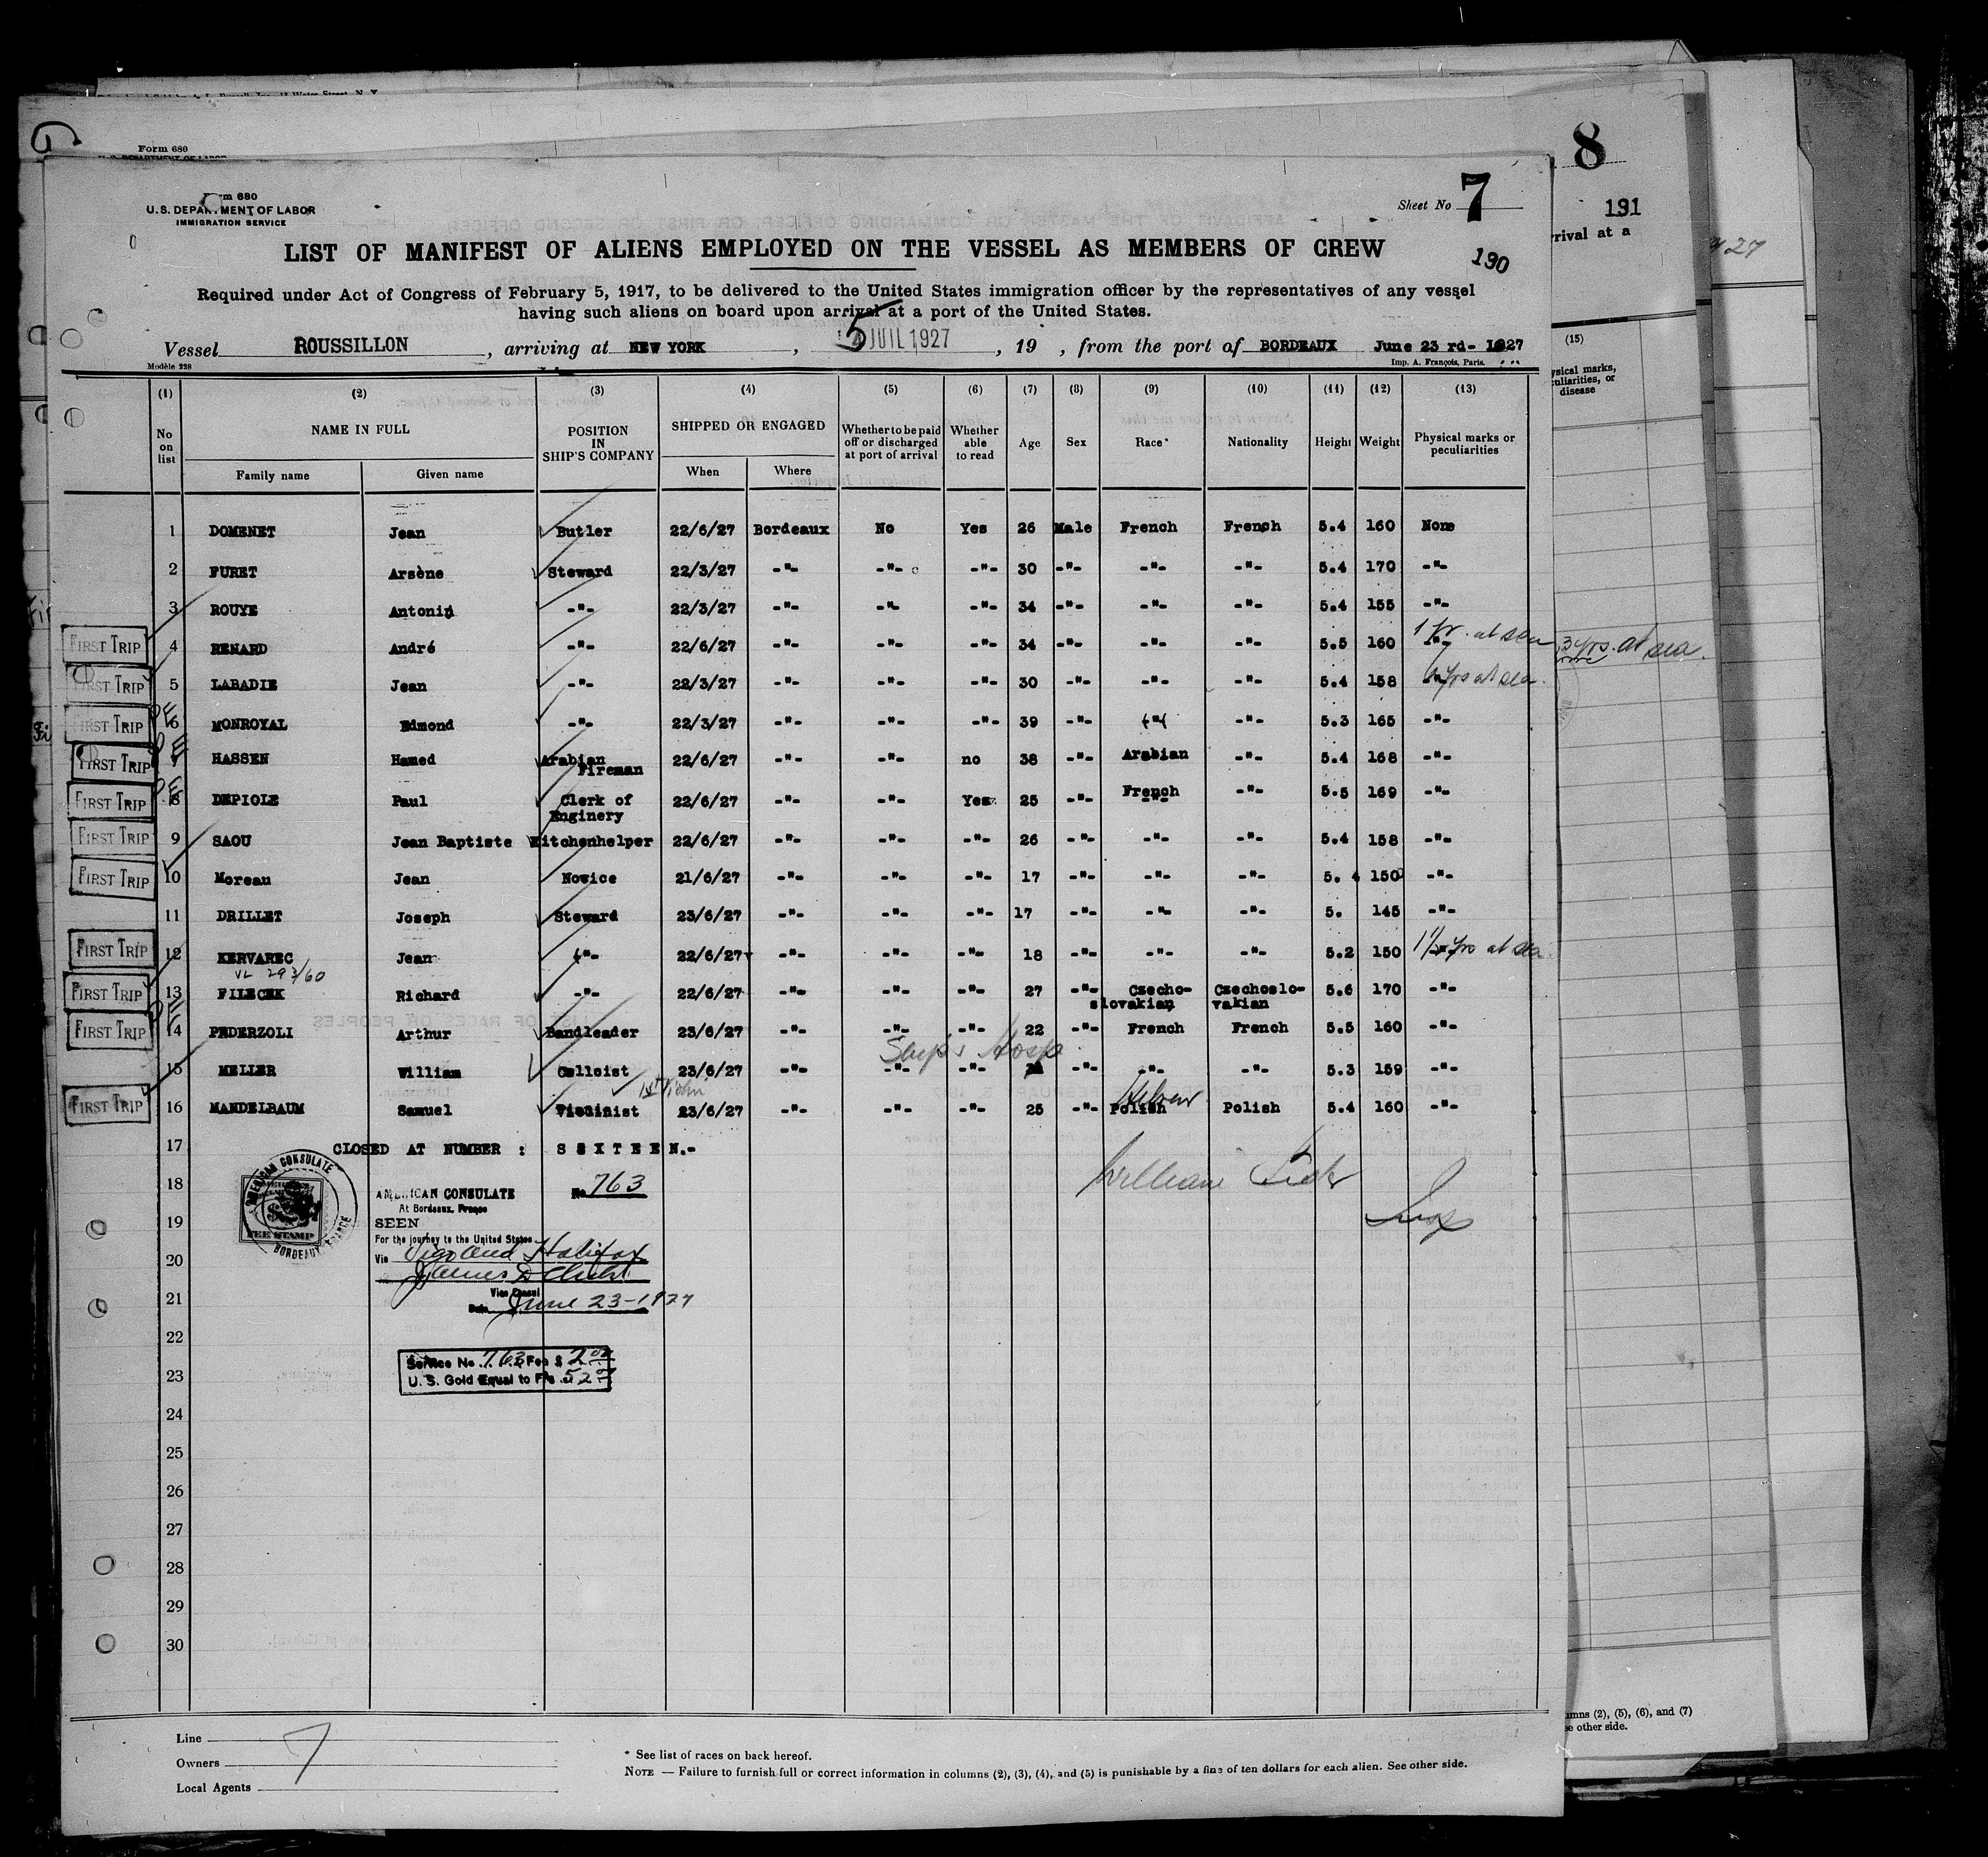 Form 680
8
191
rival at a
27
(15)
ysical marks,
culiarities, or
disease
3 yrs. at sea.
umns (2), (5), (6), and (7)
ee other side.
Form 680
U.S. DEPARTMENT OF LABOR
IMMIGRATION SERVICE
Sheet No 7
190
LIST OF MANIFEST OF ALIENS EMPLOYED ON THE VESSEL AS MEMBERS OF CREW
Required under Act of Congress of February 5, 1917, to be delivered to the United States immigration officer by the representatives of any vessel
having such aliens on board upon arrival at a port of the United States.
Vessel ROUSSILLON, arriving at NEW YORK, 5 JUIL 1927, 19 , from the port of BORDEAUX June 23 rd- 1927
Modèle 228
Imp. A. François, Paris.
(1) (2) (3) (4) (5) (6) (7) (8) (9) (10) (11) (12) (13)
No on list NAME IN FULL Family name Given name POSITION IN SHIP'S COMPANY SHIPPED OR ENGAGED When Where Whether to be paid off or discharged at port of arrival Whether able to read Age Sex Race* Nationality Height Weight Physical marks or peculiarities
1 DOMENET Jean Butler 22/6/27 Bordeaux No Yes 26 Male French French 5.4 160 None
2 FURET Arsène Steward 22/3/27 -"- -"- -"- 30 -"- -"- -"- 5.4 170 -"-
3 ROUYE Antonin -"- 22/3/27 -"- -"- -"- 34 -"- -"- -"- 5.4 155 -"-
FIRST TRIP 4 RENARD André -"- 22/6/27 -"- -"- -"- 34 -"- -"- -"- 5.5 160 -"- 1 yr. at sea
FIRST TRIP 5 LABADIE Jean -"- 22/3/27 -"- -"- -"- 30 -"- -"- -"- 5.4 158 -"- yrs at sea.
FIRST TRIP 6 MONROYAL Edmond -"- 22/3/27 -"- -"- -"- 39 -"- -"- -"- 5.3 165 -"-
FIRST TRIP 7 HASSEN Hamed Arabian Fireman 22/6/27 -"- -"- no 38 -"- Arabian -"- 5.4 168 -"-
FIRST TRIP 8 DEPIOLE Paul Clerk of Enginery 22/6/27 -"- -"- Yes 25 -"- French -"- 5.5 169 -"-
FIRST TRIP 9 SAOU Jean Baptiste Kitchenhelper 22/6/27 -"- -"- -"- 26 -"- -"- -"- 5.4 158 -"-
FIRST TRIP 10 Moreau Jean Novice 21/6/27 -"- -"- -"- 17 -"- -"- -"- 5. 4 150 -"-
11 DRILLET Joseph Steward 23/6/27 -"- -"- -"- 17 -"- -"- -"- 5. 145 -"-
FIRST TRIP 12 KERVAREC Jean -"- 22/6/27 -"- -"- -"- 18 -"- -"- -"- 5.2 150 -"- 1 1/2 yrs at sea
VL 293/60
FIRST TRIP 13 FILECEK Richard -"- 22/6/27 -"- -"- -"- 27 -"- Czecho-slovakian Czechoslo-vakian 5.6 170 -"-
FIRST TRIP 14 PEDERZOLI Arthur Bandleader 23/6/27 -"- -"- -"- 22 -"- French French 5.5 160 -"-
Ship's Hosp
15 MELLER William Celloist 23/6/27 -"- -"- -"- -"- -"- -"- 5.3 159 -"-
1st Violin Hebrew
FIRST TRIP 16 MANDELBAUM Samuel Violinist 23/6/27 -"- -"- -"- 25 -"- Polish Polish 5.4 160 -"-
17 CLOSED AT NUMBER : S I X T E E N.-
18
19
20
21
22
23
24
25
26
27
28
29
30
AMERICAN CONSULATE
BORDEAUX, FRANCE
FEE STAMP
AMERICAN CONSULATE No 763
At Bordeaux, France
SEEN
For the journey to the United States
Via Vigo and Halifax
James
Vice Consul
Date June 23-1927
Service No. 763 Fee $ 2.00
U. S. Gold Equal to Frs.
William
Line
Owners
Local Agents
7
* See list of races on back hereof.
NOTE — Failure to furnish full or correct information in columns (2), (3), (4), and (5) is punishable by a fine of ten dollars for each alien. See other side.